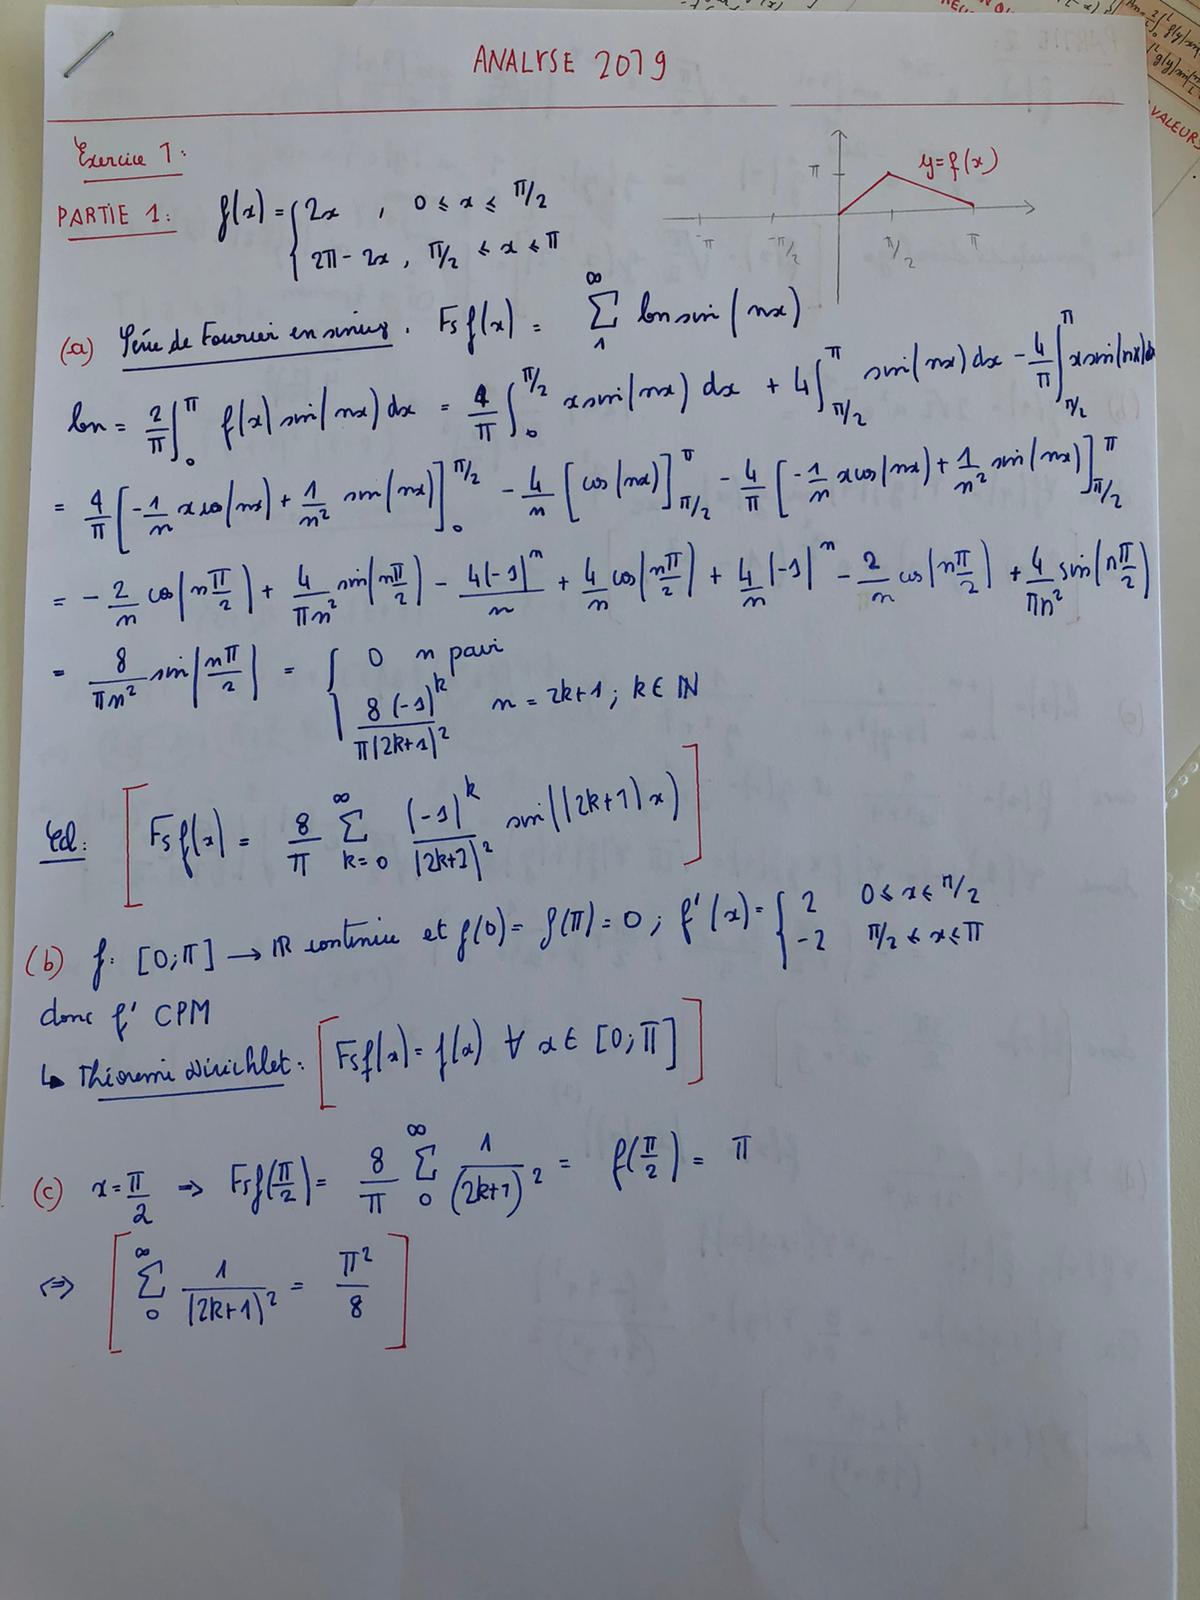 ANALYSE 2019
Exercice 1:
PARTIE 1: f(x) = { 2x , 0 ≤ x ≤ π/2
2π - 2x , π/2 ≤ x ≤ π
y = f(x)
π
-π -π/2 π/2 π
(a) Série de Fourier en sinus. Fs f(x) = ∑_1^∞ bn sin(nx)
bn = 2/π ∫_0^π f(x) sin(nx) dx = 4/π ∫_0^{π/2} x sin(nx) dx + 4 ∫_{π/2}^π sin(nx) dx - 4/π ∫_{π/2}^π x sin(nx) dx
= 4/π [-1/n x cos(nx) + 1/n² sin(nx)]_0^{π/2} - 4/n [cos(nx)]_{π/2}^π - 4/π [-1/n x cos(nx) + 1/n² sin(nx)]_{π/2}^π
= - 2/n cos(nπ/2) + 4/πn² sin(nπ/2) - 4(-1)^n/n + 4/n cos(nπ/2) + 4/n (-1)^n - 2/n cos(nπ/2) + 4/πn² sin(nπ/2)
= 8/πn² sin(nπ/2) = { 0 n pair
8(-1)^k/π(2k+1)² n = 2k+1 ; k ∈ ℕ
Ccl: [Fs f(x) = 8/π ∑_{k=0}^∞ (-1)^k/(2k+1)² sin((2k+1)x)]
(b) f: [0;π] → ℝ continue et f(0) = f(π) = 0 ; f'(x) = { 2 0 ≤ x ≤ π/2
-2 π/2 ≤ x ≤ π
donc f' CPM
↳ Théorème Dirichlet: [Fs f(x) = f(x) ∀ x ∈ [0;π]]
(c) x = π/2 ⇒ Fs f(π/2) = 8/π ∑_0^∞ 1/(2k+1)² = f(π/2) = π
⇔ [∑_0^∞ 1/(2k+1)² = π²/8]
VALEURS